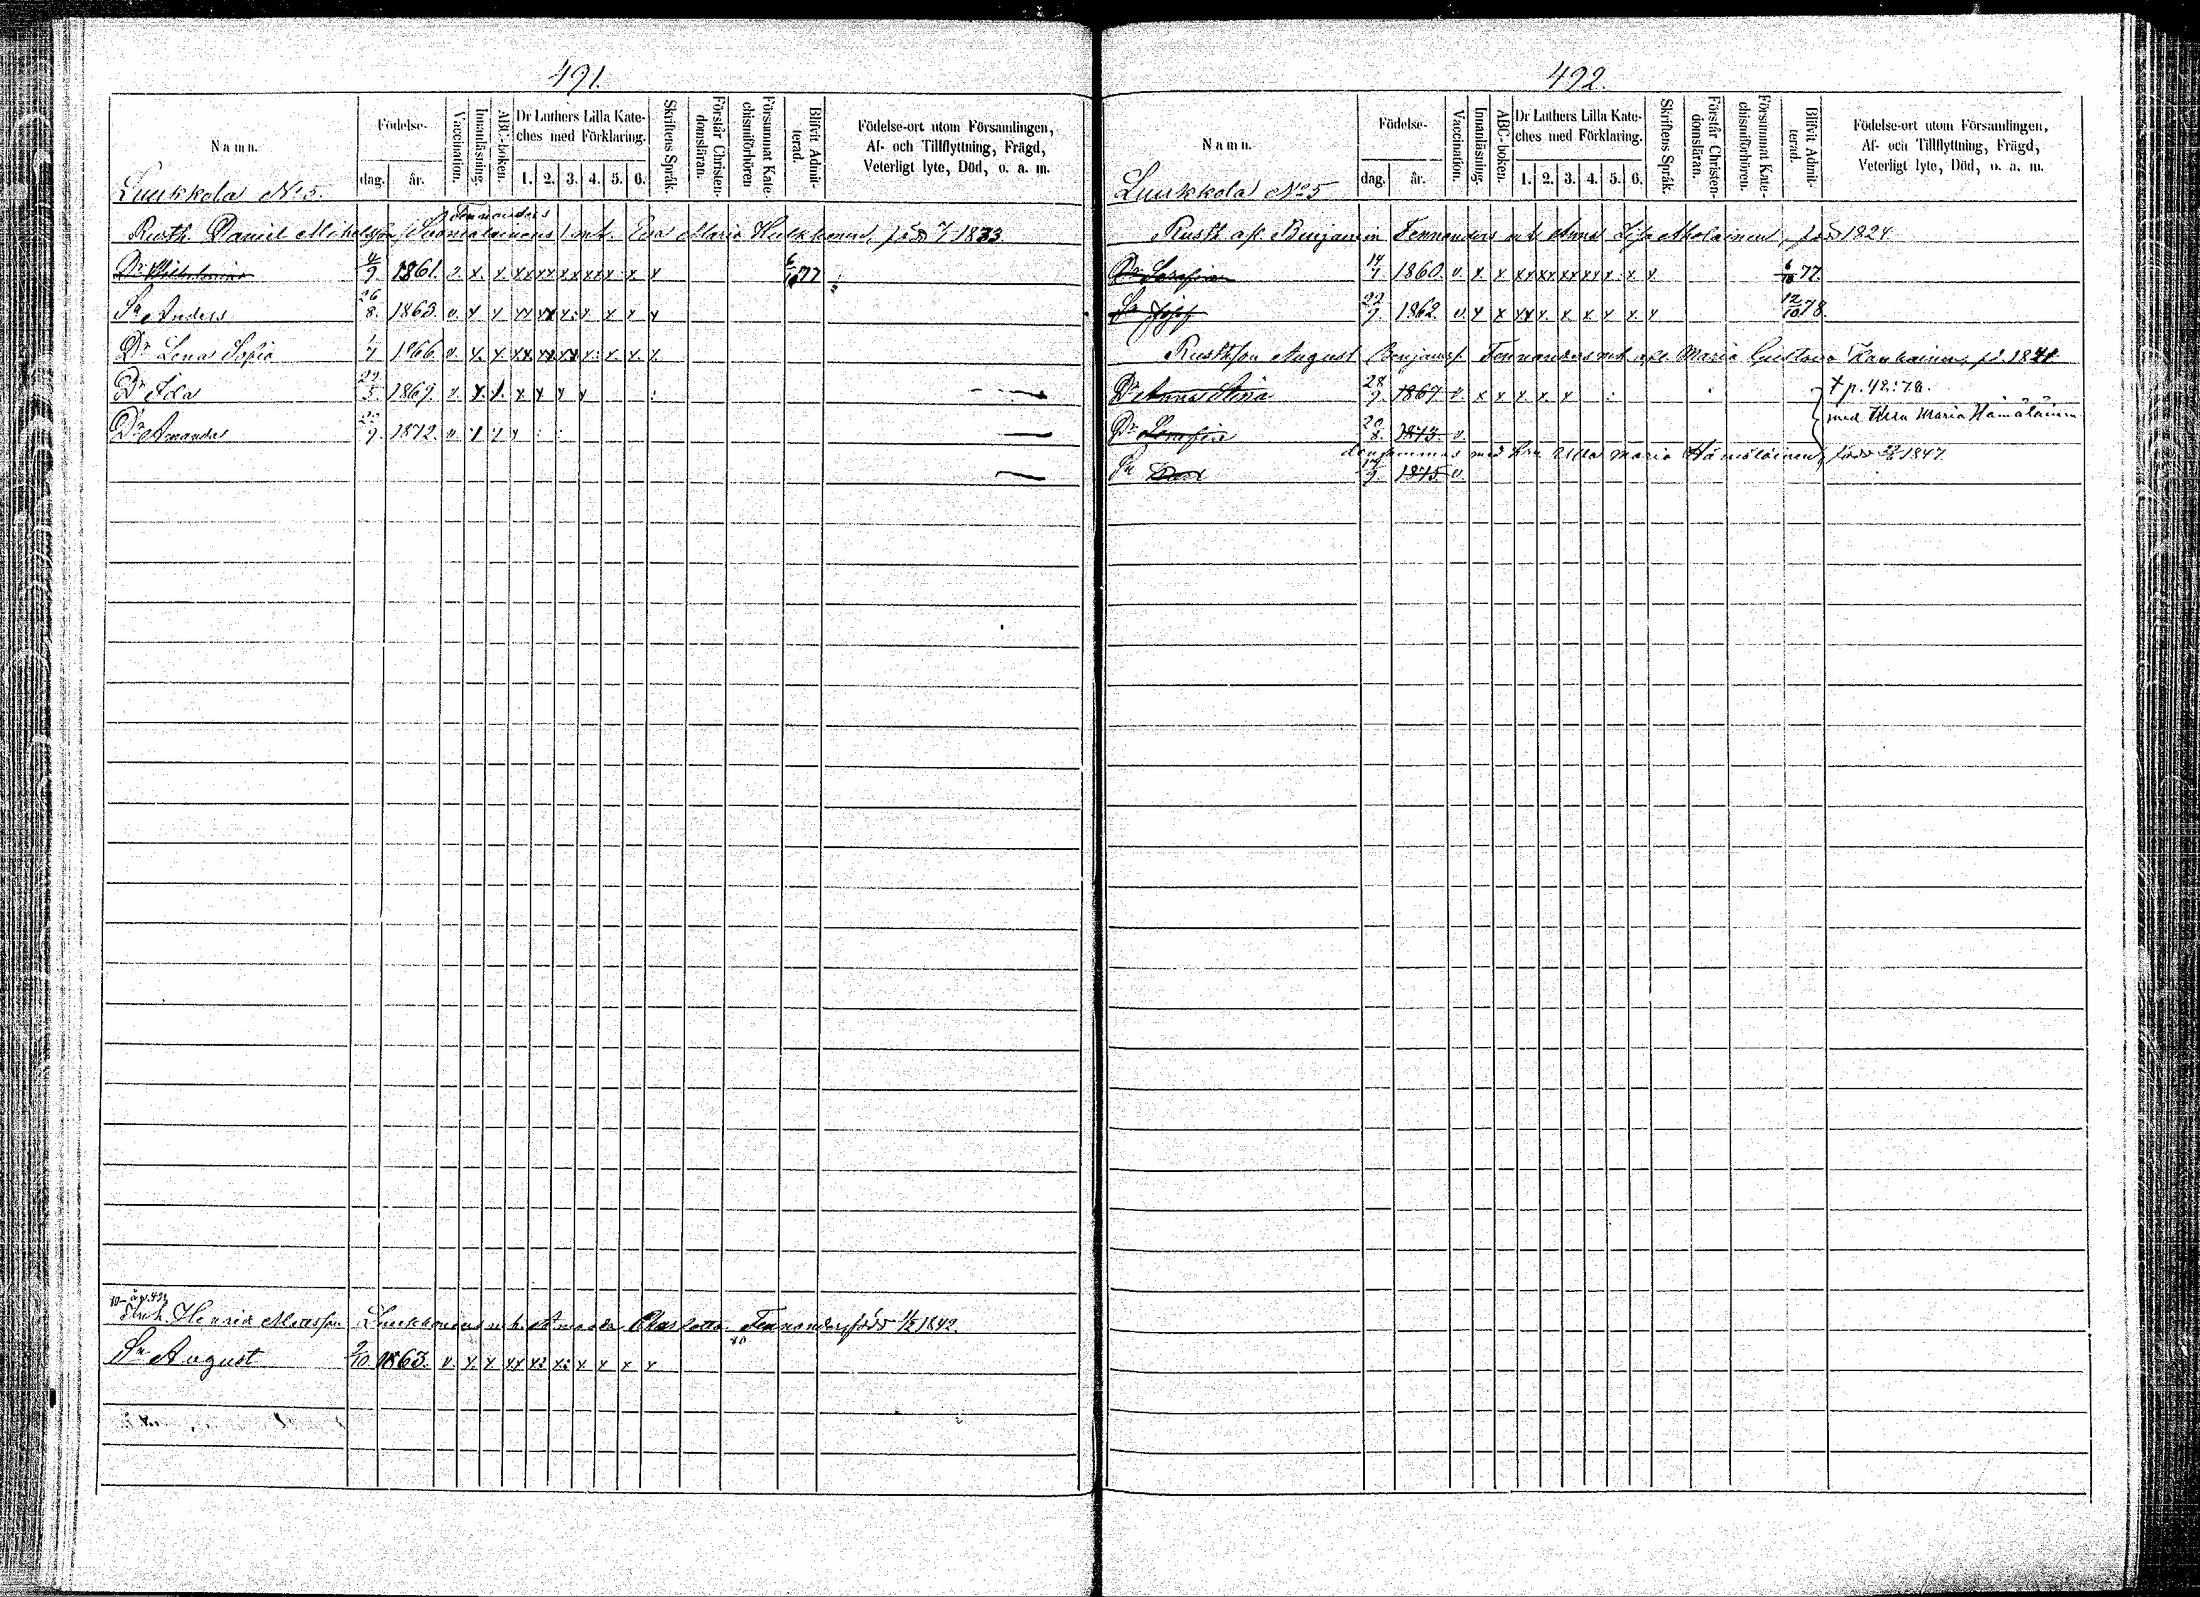 491.
Namn.
Födelse-
dag.
år.
Vaccination.
Innanläsning.
ABC-boken.
Dr Luthers Lilla Kate-
ches med Förklaring.
1. 2. 3. 4. 5. 6.
Skriftens Språk.
Förstår Christen-
domsläran.
Försummat Kate-
chismiförhören
Blifvit Admit-
terad.
Födelse-ort utom Församlingen,
Af- och Tillflyttning, Frägd,
Veterligt lyte, Död, o. a. m.
Luukkola No 5.
Fennanders
Rusth. Daniel Michelsson Suomalainens mt. Eva Maria Hulkkonen, född 1833
Dr Wilhelmina 4/9 1861. v. x x xx xx xx xx x x x 6/10 77
Sn Anders 26/8 1863. v. x x xx xx x: x x x x
Dr Lena Sofia 1/7 1866. v. x. x xx xx xx x: x x x
Dr Ida 29/5 1869. v. x. x. x x x x :
Dr Amanda 22/9 1872. v. x x x : :
å p. 491
Henric Mattsson Luukkonens mt. Amanda Charlotta Fennander född 1/2 1842.
Sn August 9/10 1863. v. x. x xx x: x: x x x x
492.
Namn.
Födelse-
dag.
år.
Vaccination.
Innanläsning.
ABC-boken.
Dr Luthers Lilla Kate-
ches med Förklaring.
1. 2. 3. 4. 5. 6.
Skriftens Språk.
Förstår Christen-
domsläran.
Försummat Kate-
chismiförhören.
Blifvit Admit-
terad.
Födelse-ort utom Församlingen,
Af- och Tillflyttning, Frägd,
Veterligt lyte, Död, o. a. m.
Luukkola No 5
Rusth. afl. Benjamin Fennanders mt Anna Lisa Aholainen, född 1824
Dr Serafina 14/7 1860. v. x x xx xx xx xx x: x x 6/10 77
Sn Josef 22/9 1862 v. x x xx x. x x x x x 12/10 78
Rusthson August Benjamsn Fennanders mt afl. Maria Gustava fd. 1841
Dr Anna Stina 28/9 1867 v x x x x x : + p. 42:79.
med Ulla Maria Hämäläinen
Dr Serafia 20/8 1873. v.
densammes med Ulla Maria Hämäläinen, född 1847.
Sn 14/9 1875 v.